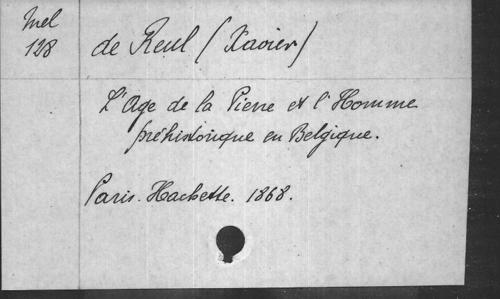 Mel
128
de Reul (Xavier)
L'Age de la Pierre et l'Homme
préhistorique en Belgique.
Paris. Hachette. 1868.